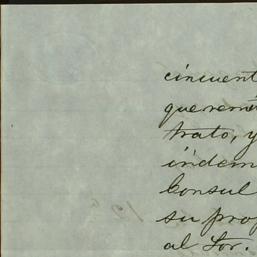 cincuent
que remi
trato, y
indem
Consul
su prop
al Sor.